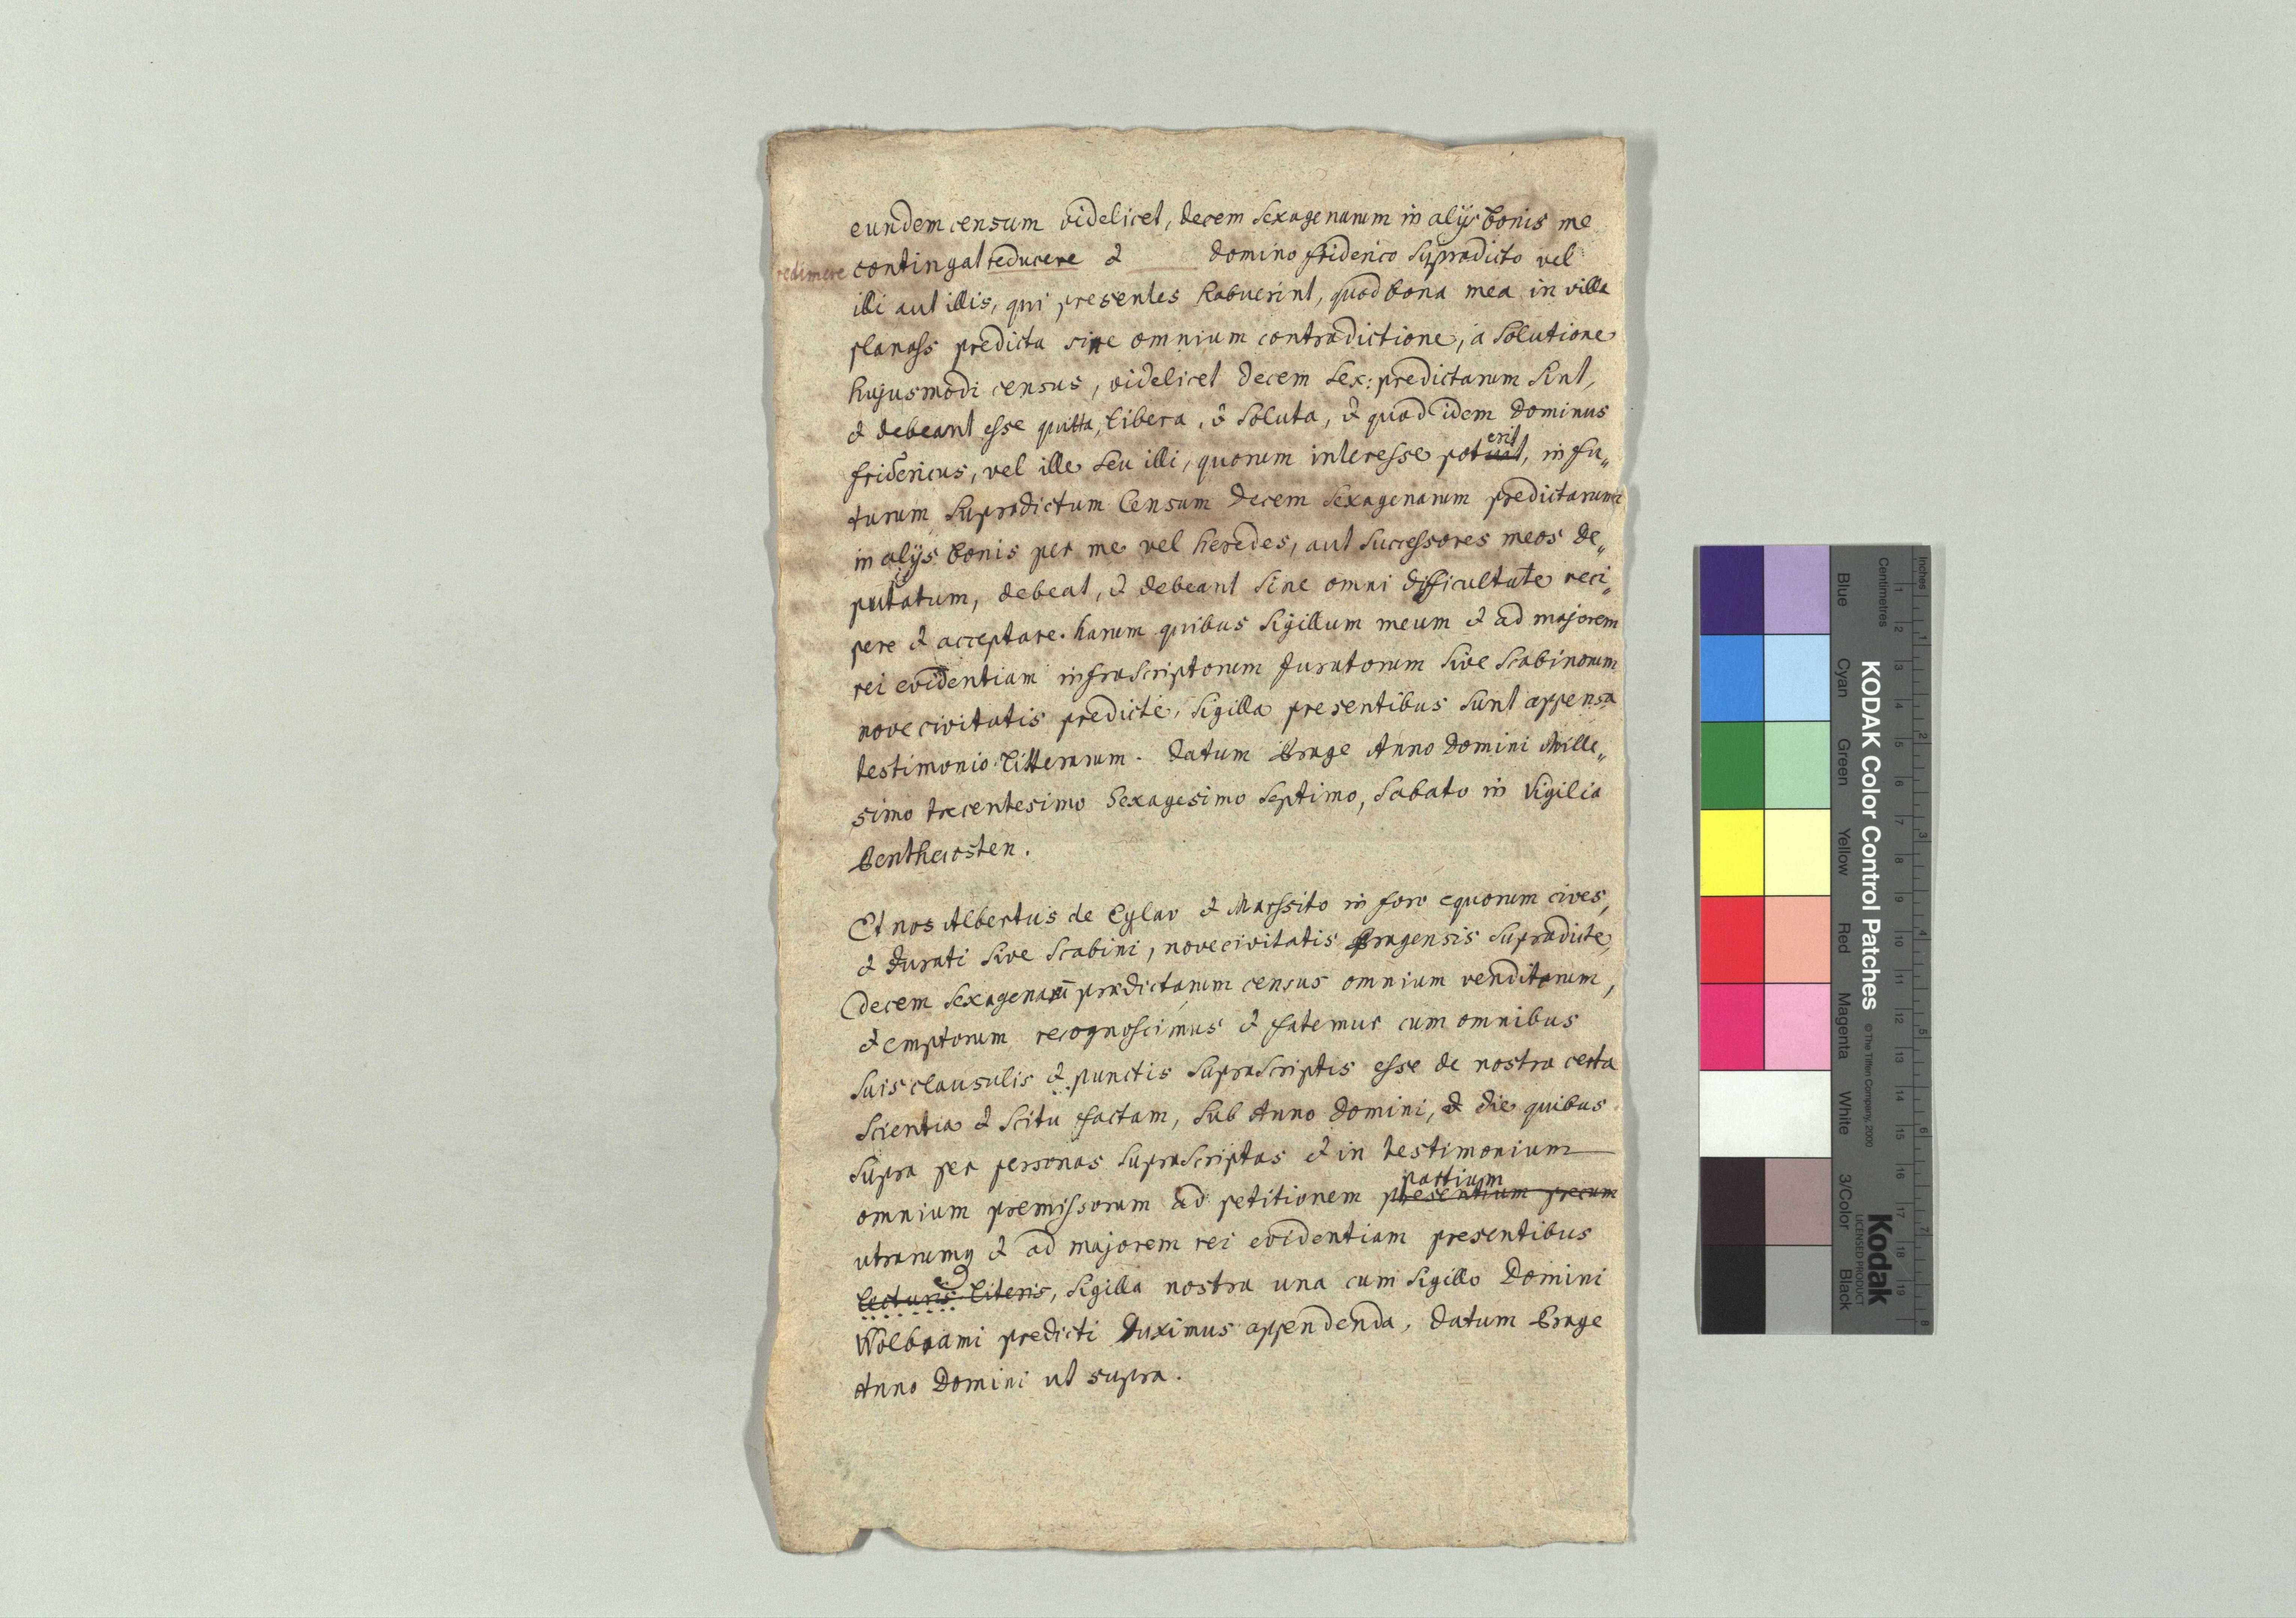 eundem censum videlicet, decem sexagenarum in alijs bonis me
redimere contingat reducere & domino friderico supradicto vel
illi aut illis, qui presentes habuerint, quod bona mea in villa
planass predicta sine omnium contradictione, a solutione
hujusmodi census, videlicet decem sex: predictarum sint,
& debeant esse quitta, libera, & soluta, & quod idem dominus
fridericus, vel ille seu illi, quorum interesse poterit, in fu„
turum supradictum censum decem sexagenarum predictarum
in alijs bonis per me vel heredes, aut successores meos de„
putatum, debeat, & debeant sine omni difficultate reci„
pere & acceptare. harum quibus sigillum meum & ad majorem
rei evidentiam infrascriptorum Juratorum sive scabinorum
nove civitatis predicte, sigilla presentibus sunt appensa
testimonio litterarum. Datum Prage Anno Domini Mille„
simo trecentesimo Sexagesimo septimo, sabato in Vigilia
Penthecosten.
Et nos Albertus de Eylav & Marssito in foro equorum cives,
& Jurati sive scabini, nove civitatis Pragensis supradicte,
decem sexagenarū prædictarum census omnium venditorum,
& emptorum recognoscimus & fatemur cum omnibus
suis clausulis & punctis suprascriptis esse de nostra certa
scientia & scitu factam, sub Anno Domini, & die quibus
supra per personas suprascriptas & in testimonium
partium
omnium premissorum ad petitionem presentium precum
utrarumq & ad majorem rei evidentiam presentibus
lecturis literis, sigilla nostra una cum sigillo Domini
Wolbrami predicti Duximus appendenda, Datum Prage
Anno Domini ut supra.
Inches
Centimetres
KODAK Color Control Patches
© The Tiffen Company, 2000
Kodak
LICENSED PRODUCT
Blue
Cyan
Green
Yellow
Red
Magenta
White
3/Color
Black
1
2
3
4
5
6
7
8
9
10
11
12
13
14
15
16
17
18
19
1
2
3
4
5
6
7
8